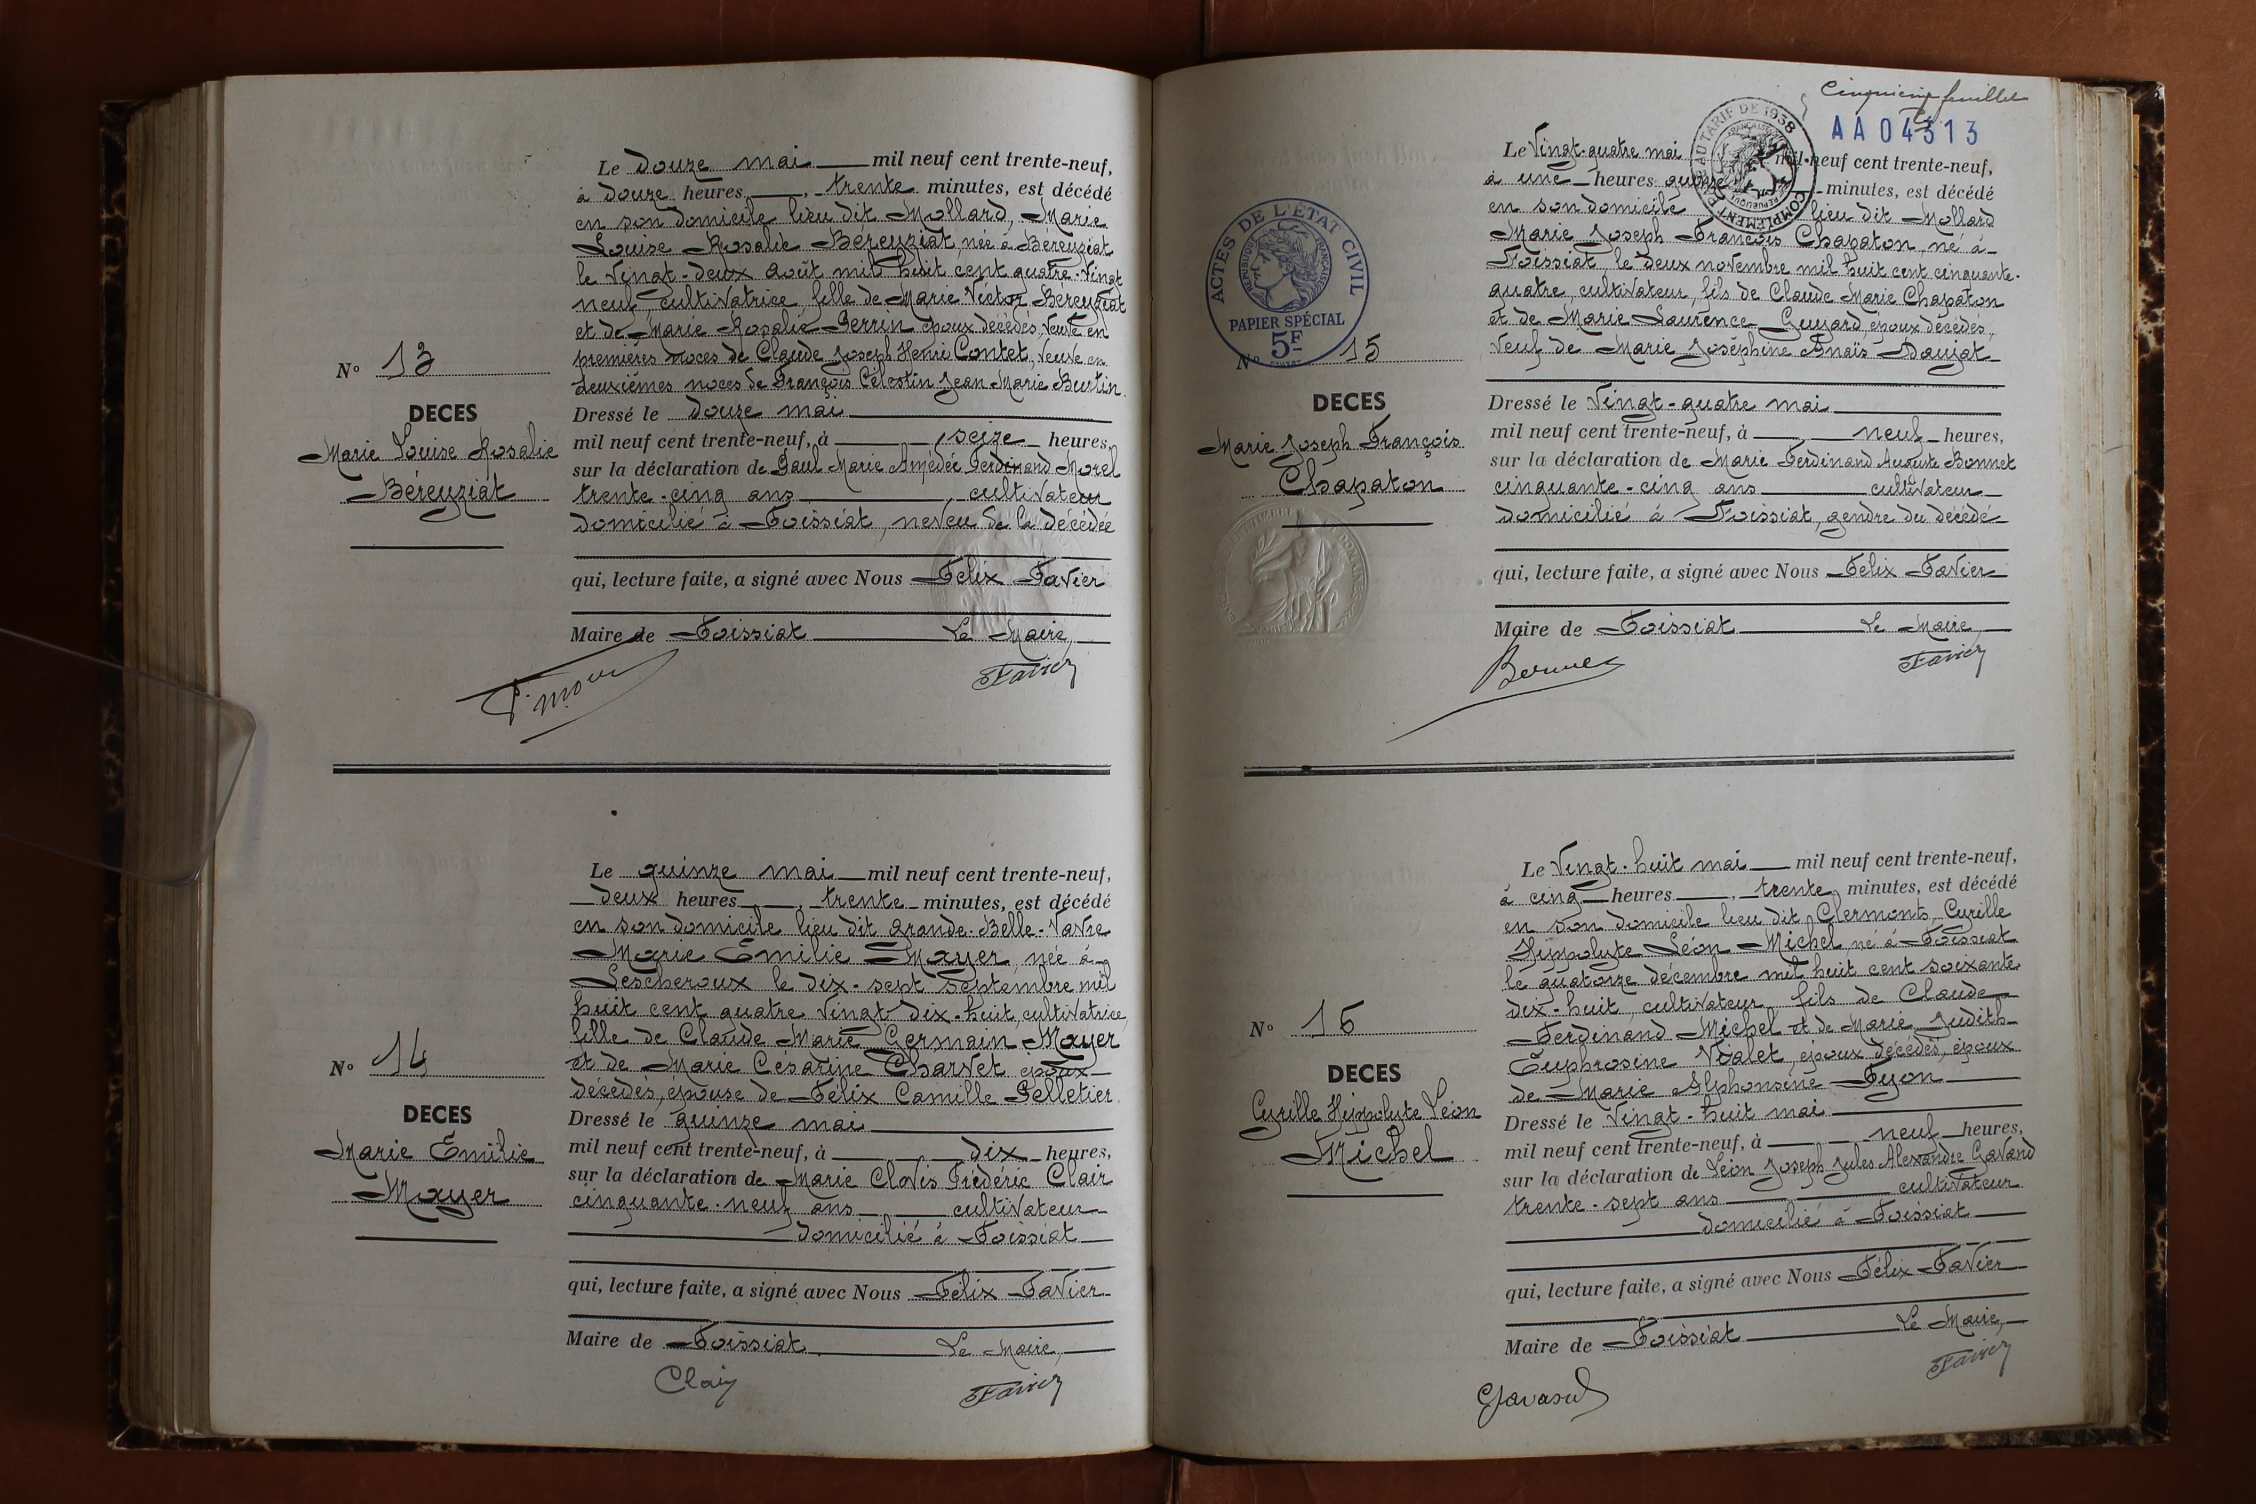 Le douze mai mil neuf cent trente-neuf,
à douze heures, trente minutes, est décédé
en son domicile lieu dit Mollard, Marie
Louise Rosalie Béreyziat, née à Béreyziat
le vingt-deux août mil huit cent quatre-vingt
neuf, cultivatrice, fille de Marie Victor Béreyziat
et de Marie Rosalie Perrin époux décédés, veuve en
premières noces de Claude Joseph Henri Contet, veuve en
deuxièmes noces de François Célestin Jean Marie Burtin.
N° 13
DECES
Marie Louise Rosalie
Béreyziat
Dressé le douze mai
mil neuf cent trente-neuf, à seize heures,
sur la déclaration de Paul Marie Amédée Ferdinand Morel
trente-cinq ans, cultivateur
domicilié à Foissiat, neveu de la décédée
qui, lecture faite, a signé avec Nous Félix Favier
Maire de Foissiat Le Maire,
Favier
Le quinze mai mil neuf cent trente-neuf,
deux heures, trente minutes, est décédé
en son domicile lieu dit Grande-Belle-Vavre
Marie Emilie Mayer, née à
Lescheroux le dix-sept septembre mil
huit cent quatre vingt dix-huit, cultivatrice,
fille de Claude Marie Germain Mayer
et de Marie Césarine Charvet époux
décédés, épouse de Félix Camille Pelletier.
N° 14
DECES
Marie Emilie
Mayer
Dressé le quinze mai
mil neuf cent trente-neuf, à dix heures,
sur la déclaration de Marie Clovis Frédéric Clair
cinquante-neuf ans cultivateur
domicilié à Foissiat
qui, lecture faite, a signé avec Nous Félix Favier
Maire de Foissiat. Le Maire,
Clair Favier
Cinquième feuillet
AA04313
AU TARIF DE 1938
COMPLÉMENT
Le Vingt-quatre mai mil neuf cent trente-neuf,
à une heures quinze minutes, est décédé
en son domicile lieu dit Mollard
Marie Joseph François Chapaton, né à
Foissiat, le deux novembre mil huit cent cinquante-
quatre, cultivateur, fils de Claude Marie Chapaton
et de Marie Laurence Guyard, époux décédés,
veuf de Marie Joséphine Anaïs Daujat
ACTES DE L'ETAT CIVIL
REPUBLIQUE FRANÇAISE
PAPIER SPÉCIAL
5F
N° 15
DECES
Marie Joseph François
Chapaton
Dressé le Vingt-quatre mai
mil neuf cent trente-neuf, à neuf heures,
sur la déclaration de Marie Ferdinand Auguste Bonnet
cinquante-cinq ans cultivateur
domicilié à Foissiat, gendre du décédé
qui, lecture faite, a signé avec Nous Félix Favier
Maire de Foissiat Le Maire,
Bonnet Favier
Le Vingt-huit mai mil neuf cent trente-neuf,
à cinq heures, trente minutes, est décédé
en son domicile lieu dit Clermonts, Cyrille
Hippolyte Léon Michel né à Foissiat
le quatorze décembre mil huit cent soixante
dix-huit, cultivateur, fils de Claude
Ferdinand Michel et de Marie Judith
Euphrosine Vialet, époux décédés, époux
de Marie Alphonsine Fyon
N° 16
DECES
Cyrille Hippolyte Léon
Michel
Dressé le Vingt-huit mai
mil neuf cent trente-neuf, à neuf heures,
sur la déclaration de Léon Joseph Jules Alexandre Gavand
trente-sept ans cultivateur
domicilié à Foissiat
qui, lecture faite, a signé avec Nous Félix Favier
Maire de Foissiat Le Maire,
Gavand Favier